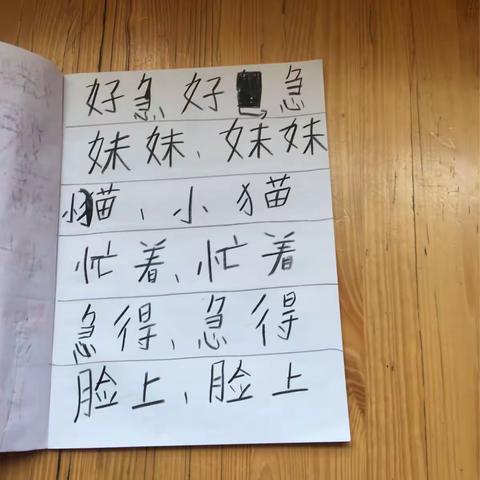 好急 好急
妹妹、妹妹
小猫、小猫
忙着、忙着
急得、急得
脸上、脸上